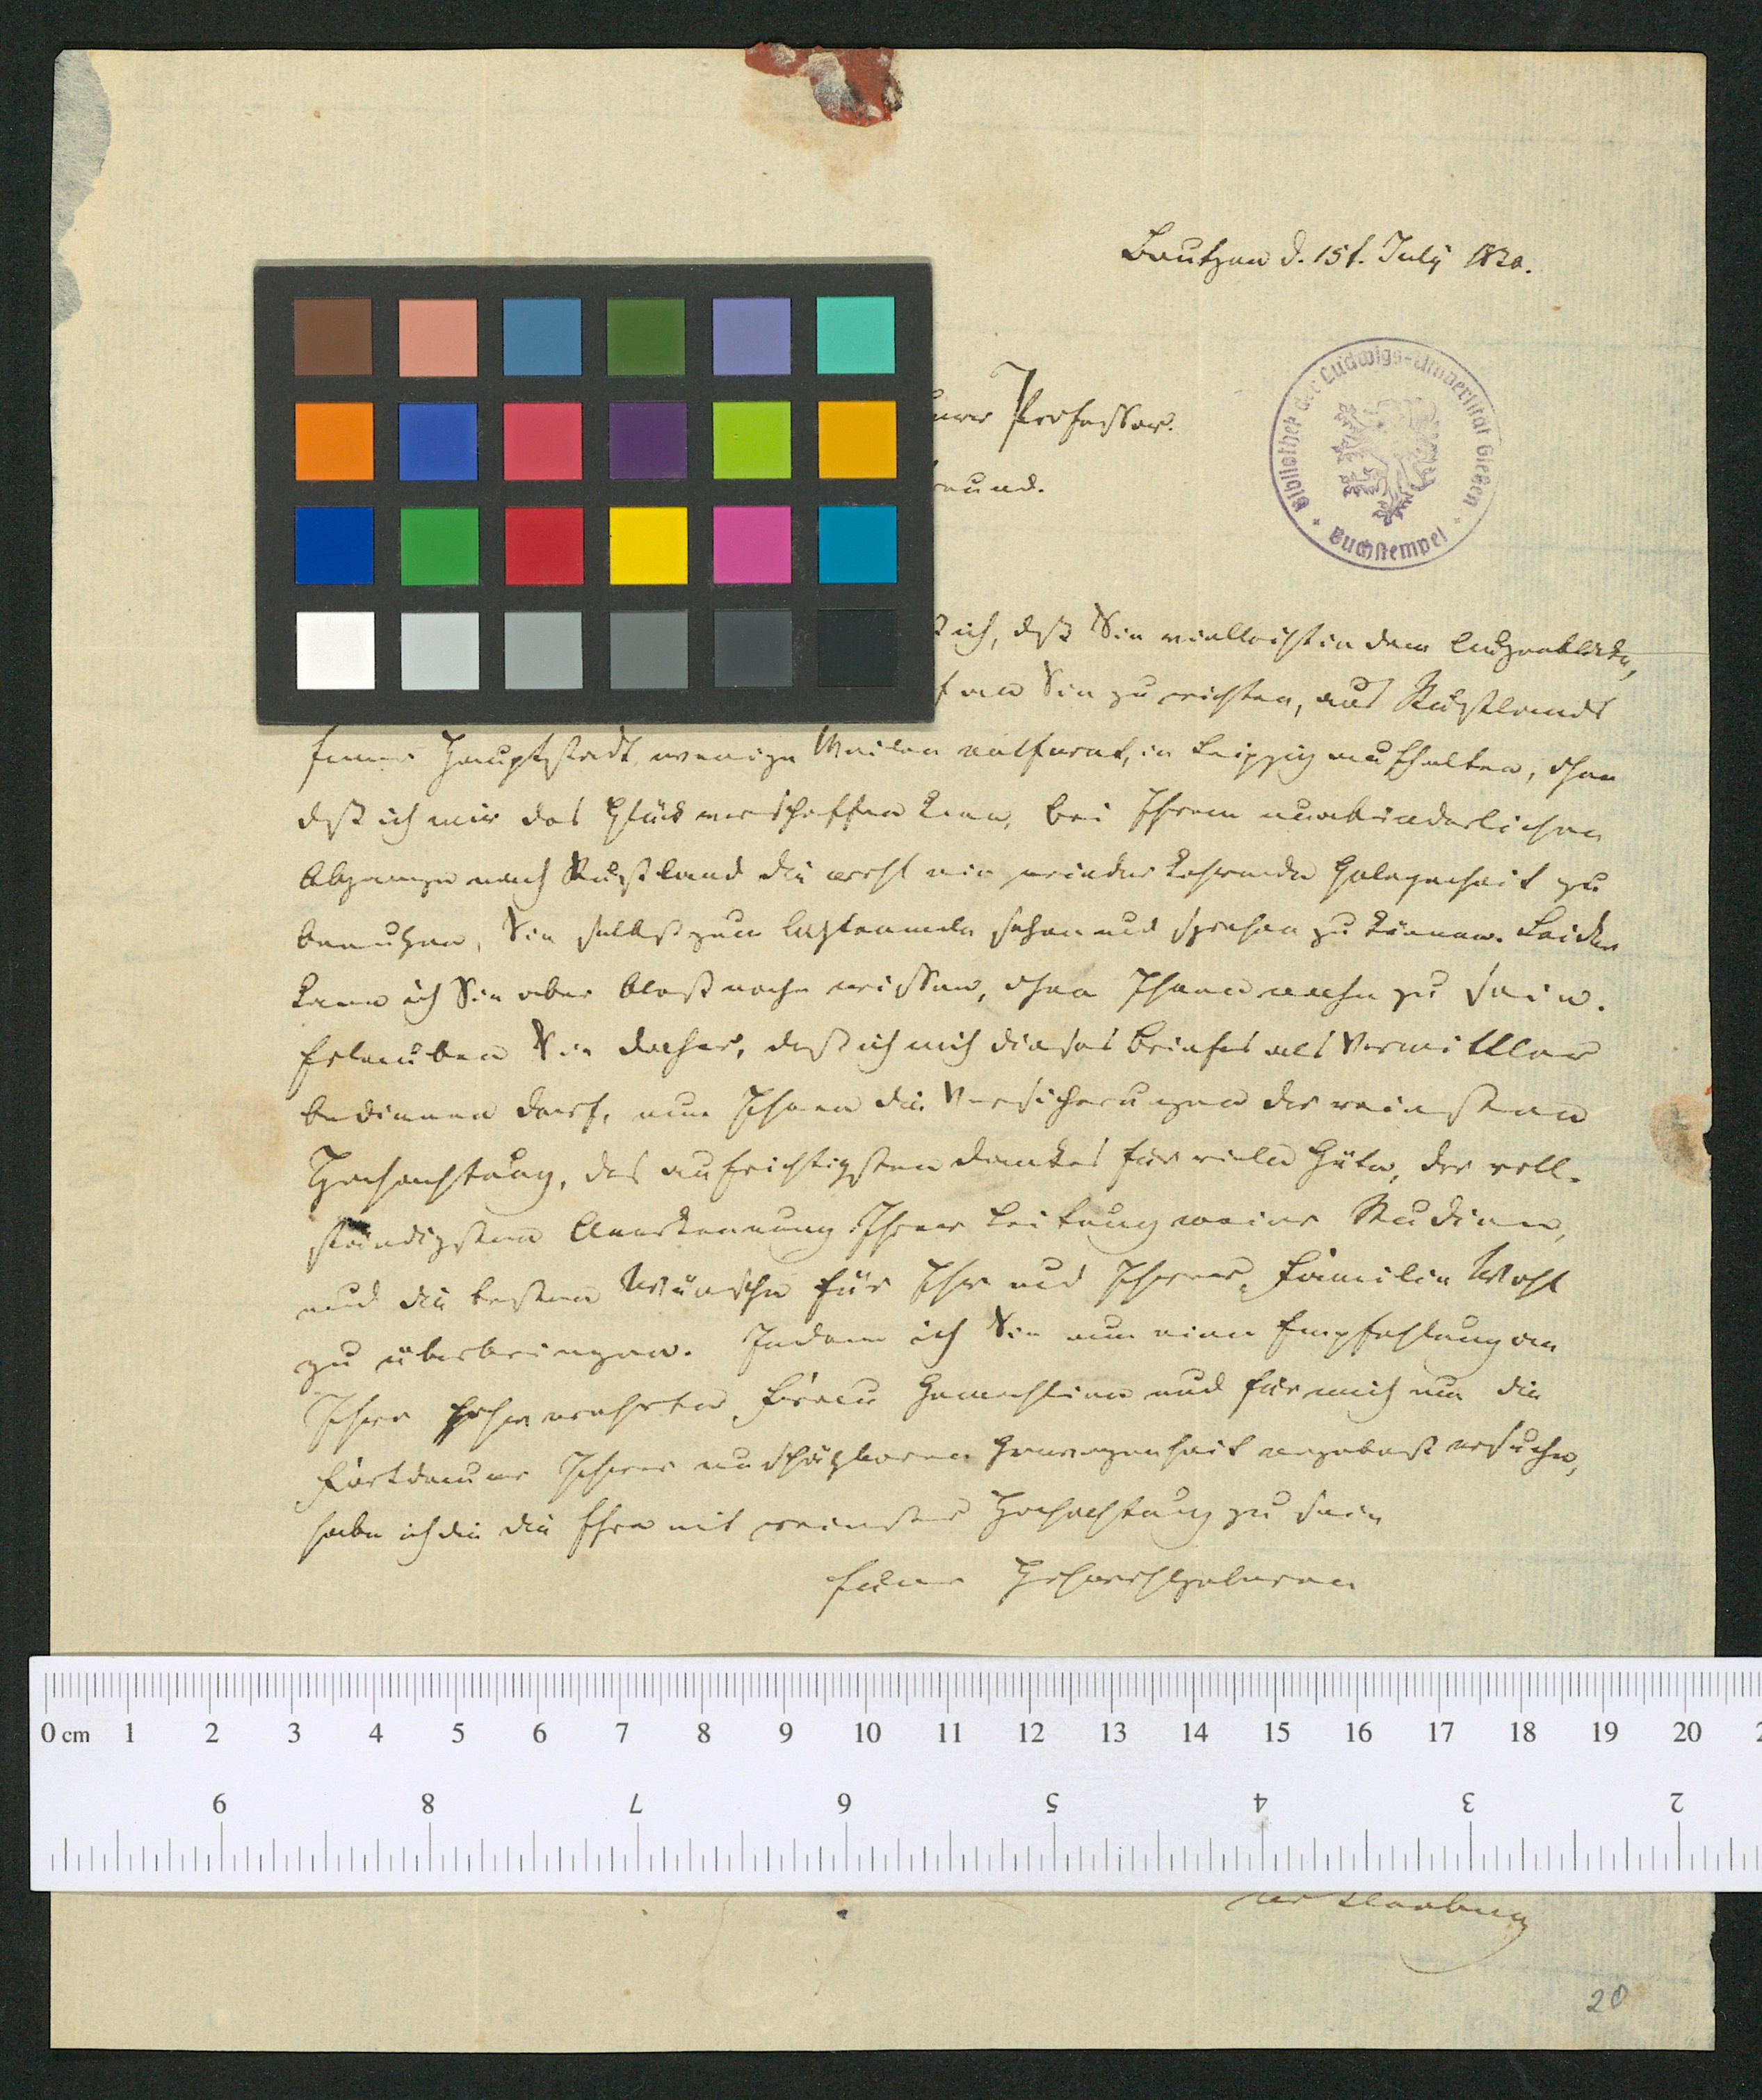 Bautzen d. 15t. July 1820.
Professor.
Bibliothek der Ludwigs-Universität Gießen
Buchstempel
ich, daß Sie vielleicht in dem Augenblicke,
an Sie zu richten, aus Rußlands
ferner Hauptstadt wenige Meilen entfernt, in Leipzig aufhalten, ohne
daß ich mir das Glück verschaffen kann, bei Ihrem unabänderlichen
Abgange nach Rußland die wohl nie wiederkehrende Gelegenheit zu
benutzen, Sie selbst zum letztenmale sehen und sprechen zu können. Leider
kann ich Sie aber bloß nahe wissen, ohne Ihnen nahe zu sein.
Erlauben Sie daher, daß ich mich dieses Briefes als Vermittler
bedienen darf, um Ihnen die Versicherungen der reinsten
Hochachtung, des aufrichtigsten Dankes für viele Güte, der voll-
ständigsten Anerkennung Ihrer Leitung meiner Studien,
und die besten Wünsche für Ihr und Ihrer Familie Wohl
zu überbringen. Indem ich Sie um eine Empfehlung an
Ihre hochverehrte Frau Gemahlinn und für mich um die
Fortdauer Ihrer unschätzbaren Gewogenheit ergebenst ersuche,
habe ich die die Ehre mit reinster Hochachtung zu sein
Euer Hochwohlgeboren
0 cm 1 2 3 4 5 6 7 8 9 10 11 12 13 14 15 16 17 18 19 20
9 8 7 6 5 4 3 2
20